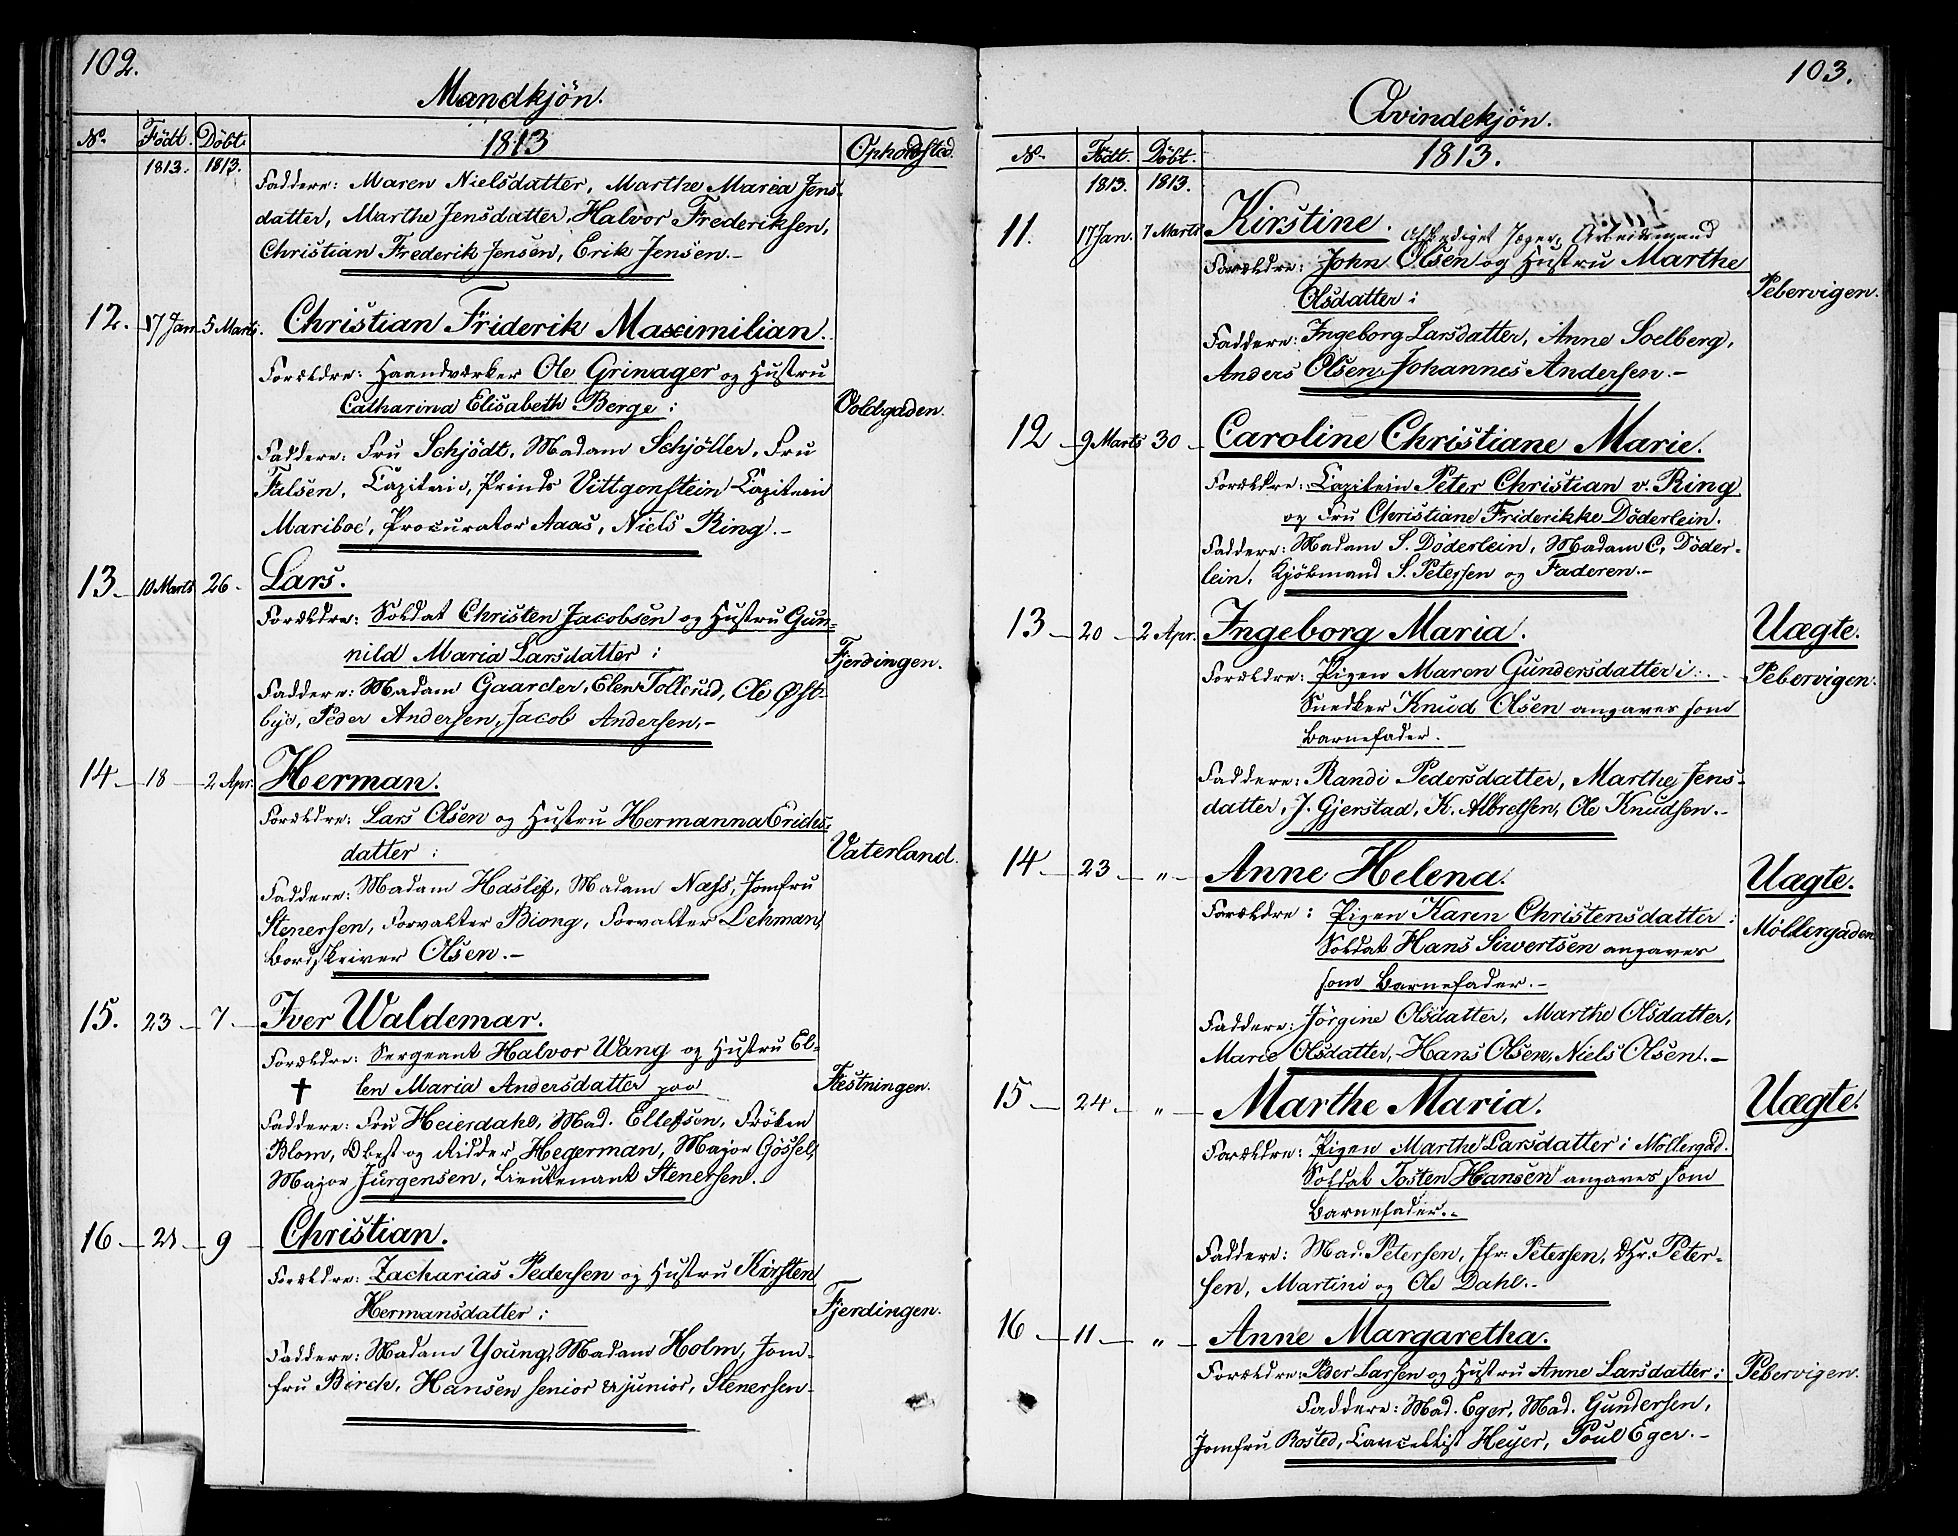 102.
Mandkjön.
No. Födt. Döbt. 1813 Opholdsted.
1813. 1813.
Faddere: Maren Nielsdatter, Marthe Maria Jens-
datter, Marthe Jensdatter, Halvor Frederiksen,
Christian Frederik Jensen, Erik Jensen.–
12. 17 Jan. 5 Marts. Christian Friderik Maximilian.
Forældre: Haandværker Ole Grinager og Hustru
Catharina Elisabeth Berge i Voldgaden.
Faddere: Fru Schjödt, Madam Schjöller, Fru
Falsen, Capitain, Prinds Vittgenstein Capitain
Mariboe, Procurator Aaas, Niels Ring.–
13. 10 Marts 26 Lars.
Forældre: Soldat Christen Jacobsen og Hustru Gun-
nild Maria Larsdatter i Fjerdingen.
Faddere: Madam Gaarder, Elen Tollerud, Ole Øst-
bye, Peder Andersen, Jacob Andersen.–
14 18 2 Apr. Herman.
Forældre: Lars Olsen og Hustru Hermanna Erichs-
datter i Vaterland.
Faddere: Madam Haslef, Madam Næss, Jomfru
Stenersen, Forvalter Biong, Forvalter Lehman,
Bordskriver Olsen.–
15. 23 7 Iver Waldemar.
Forældre: Sergeant Halvor Wang og Hustru El-
† len Maria Andersdatter paa Festningen.
Faddere: Fru Heierdahl, Mad. Ellefson, Fröken
Blom, Obest og Ridder Hegerman, Major Gössel,
Major Jürgensen, Lieutenant Stenersen.
16 21 9 Christian.
Forældre: Zacharias Pedersen og Hustru Kirsten
Hermansdatter i Fjerdingen.
Faddere: Madam Young, Madam Holm, Jom-
fru Birch, Hansen senior & junior, Stenersen.
103.
Qvindekjön.
No. Födt. Döbt. 1813.
1813. 1813.
11. 17 Jan. 7 Marts Kirstine. Afskediget Jæger, Arbeidsmand
Forældre: John Olsen og Hustru Marthe
Olsdatter i Pebervigen.
Faddere: Ingeborg Larsdatter, Anne Soelberg,
Anders Olsen, Johannes Andersen.–
12 9 Marts 30 Caroline Christiane Marie.
Forældre: Capitein Peter Christian v. Ring
og Fru Christiane Friderikke Döderlein.
Faddere: Madam S. Döderlein, Madam C. Döder-
lein, Kjöbmand S. Petersen og Faderen.–
13 20 2 Apr. Ingeborg Maria. Uægte.
Forældre: Pigen Maren Gundersdatter i Pebervigen.
Snedker Knud Olsen angaves som
Barnefader.
Faddere: Randi Pedersdatter, Marthe Jens-
datter, J. Gjerstad, K. Albretsen, Ole Knudsen.–
14 23 " Anne Helena. Uagte.
Forældre: Pigen Karen Christensdatter i Möllergaden
Soldat Hans Siwertsen angaves
som Barnefader.–
Faddere: Jörgine Olsdatter, Marthe Olsdatter,
Maree Olsdatter, Hans Olsen, Niels Olsen.–
15 24 " Marthe Maria. Uægte.
Forældre: Pigen Marthe Larsdatter i Möllergad.
Soldat Tosten Hansen angaves som
Barnefader.–
Faddere: Mad. Petersen, Jfr. Petersen, Hr. Peter-
sen, Martini og Ole Dahl.–
16 11 " Anne Margaretha.
Forældre: Peder Larsen og Hustru Anne Larsdatter i Pebervigen.
Faddere: Mad. Eger, Mad. Gundersen,
Jomfru Rosted, Cancellist Heyer, Poul Eger.–